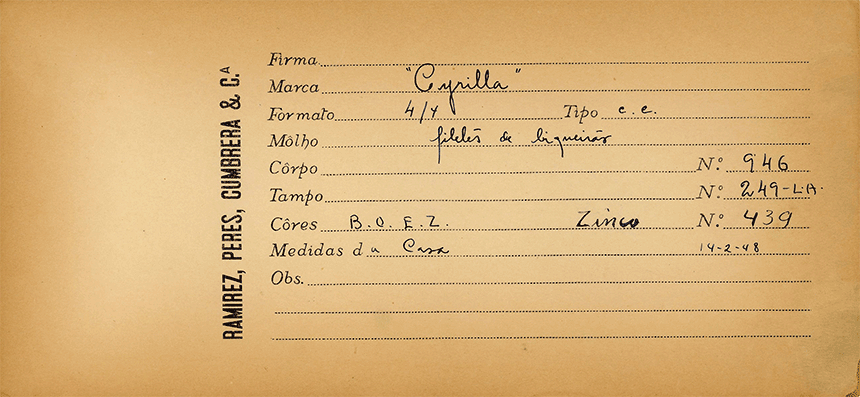 RAMIREZ, PERES, CUMBRERA & C.ᴬ
Firma
Marca "Cyrilla"
Formato 4/4 Tipo c.c.
Môlho filetes de biqueirão
Côrpo N.º 946
Tampo N.º 249-L.A.
Côres B.O.E.Z. Zinco N.º 439
Medidas da Casa 14-2-48
Obs.